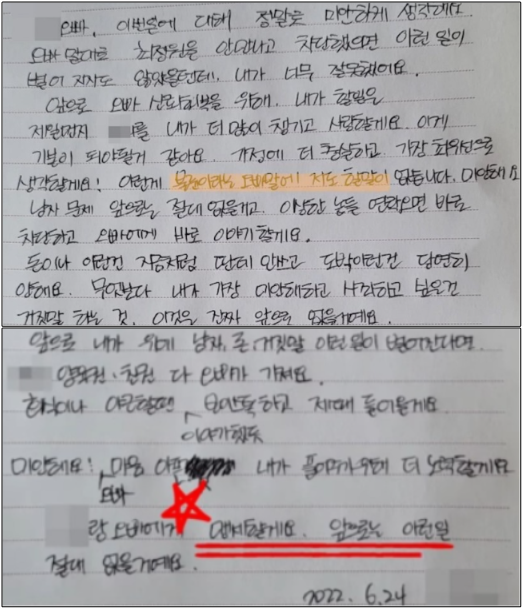 오빠, 이번일에 대해 정말로 미안하게 생각해요.
오빠 말대로 회식원을 안만나고 차단했으면 이런 일이
벌어 지지도 않았을텐데. 내가 너무 잘못했어요.
앞으로 오빠 신뢰회복을 위해. 내가 할일은
제일먼저 를 내가 더 많이 챙기고 사랑할게요. 이게
기본이 되야할거 같아요. 가정에 더 충실하고 가장 최우선으로
생각할게요! 이렇게 오빠말에 저도 할말이 없습니다. 미안해요
남자 문제 앞으로는 절대 없을거고. 이상한 놈들 연락오면 바로
차단하고 오빠에게 바로 이야기할게요.
돈이나 이런건 지금처럼 딴데 안쓰고 도박이런건 당연히
안해요. 무엇보다 내가 가장 미안해하고 사과하고 싶은건
거짓말 하는 것. 이것은 진짜 앞으로 없을거에요.
앞으로 내가 위에 남자, 돈, 거짓말 이런 일이 벌어진다면.
양육권·친권 다 오빠가 가져요.
회식이나 야근할땐 이야기했듯 하고 제때 들어올게요.
미안해요! 오빠 마음 아픈 내가 풀어주기위해 더 노력할게요
랑 오빠에게 맹세할게요. 앞으로는 이런일
절대 없을거에요.
2022. 6.24